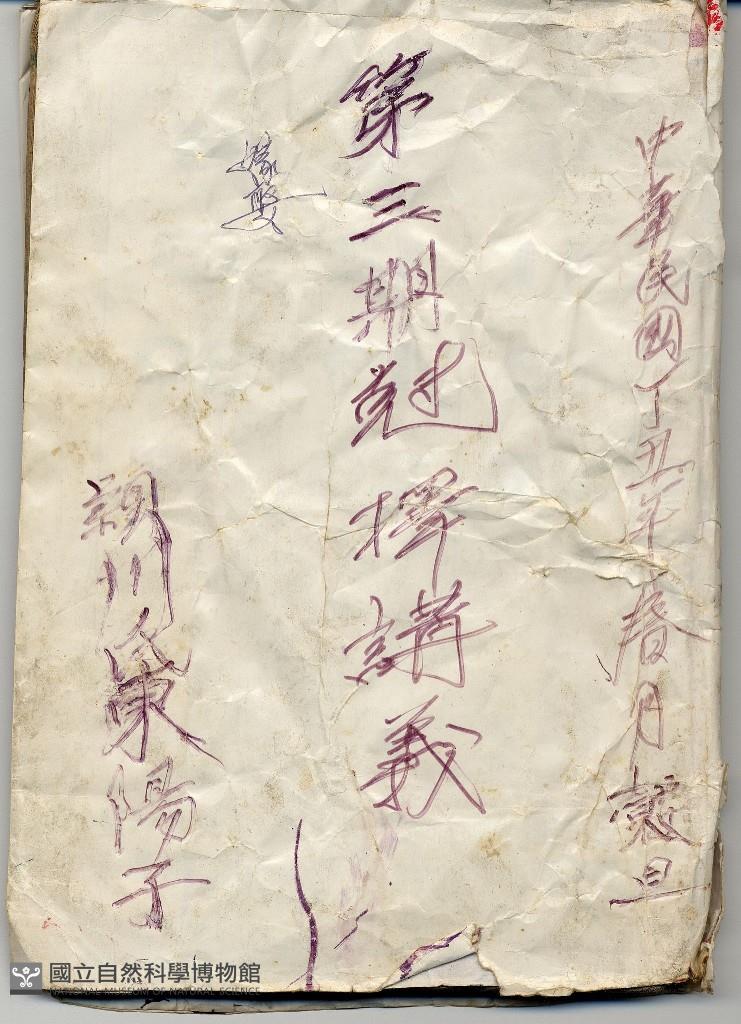 中華民國丁丑年春月 旦
第三期尅擇講義
嫁娶
潁川 陽子
國立自然科學博物館
NATIONAL MUSEUM OF NATURAL SCIENCE